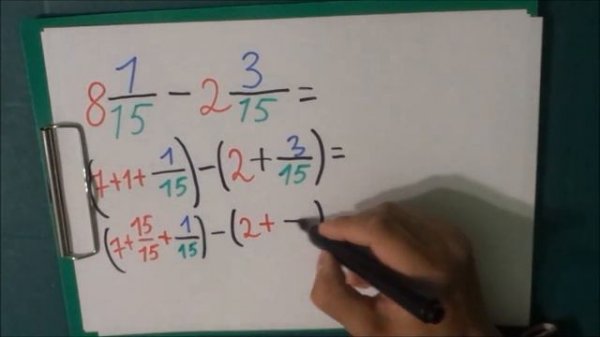 8 1/15 − 2 3/15 =
(7+1+ 1/15) − (2 + 3/15) =
(7+ 15/15 + 1/15) − (2+ —)